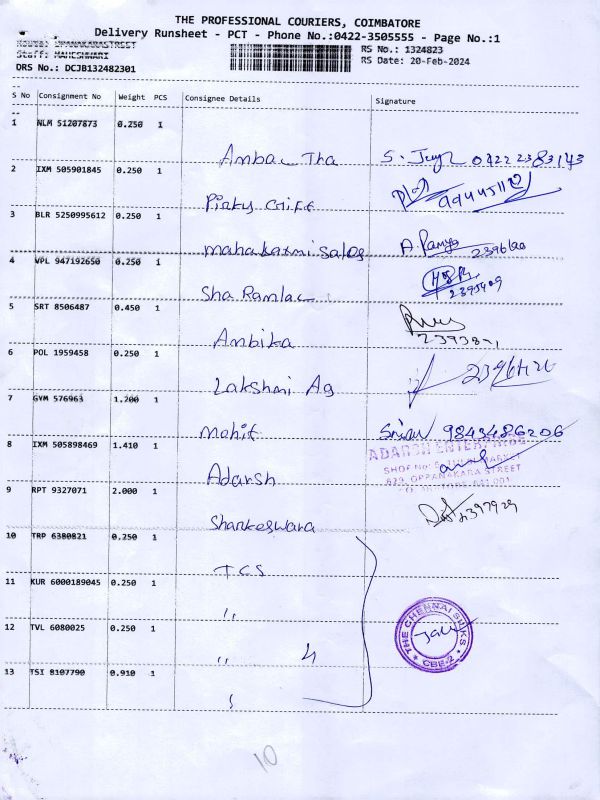 THE PROFESSIONAL COURIERS, COIMBATORE
Delivery Runsheet - PCT - Phone No.:0422-3505555 - Page No.:1
Route: OPPANAKARASTREET
Staff: MAHESHWARI
DRS No.: DCJB132482301
RS No.: 1324823
RS Date: 20-Feb-2024
S No Consignment No Weight PCS Consignee Details Signature
1 NLM 51207873 0.250 1
Amba Tha S. 0422 2383143
2 IXM 505901845 0.250 1
Pinky Gift
3 BLR 5250995612 0.250 1
Mahalaxmi Sales A. Ramya
4 VPL 947192650 0.250 1
Sha Ramlal 2395409
5 SRT 8506487 0.450 1
Ambika 2393871
6 POL 1959458 0.250 1
Lakshmi Ag
7 GYM 576963 1.200 1
Mohit 9843486206
8 IXM 505898469 1.410 1
Adarsh
ADARSH ENTERPRISES
629, OPPANAKARA STREET
9 RPT 9327071 2.000 1
Shankeswara 2397929
10 TRP 6380821 0.250 1
TCS
11 KUR 6000189045 0.250 1
"
12 TVL 6080025 0.250 1
" 4
13 TSI 8107790 0.910 1
THE CHENNAI SILKS
CBE-2
10